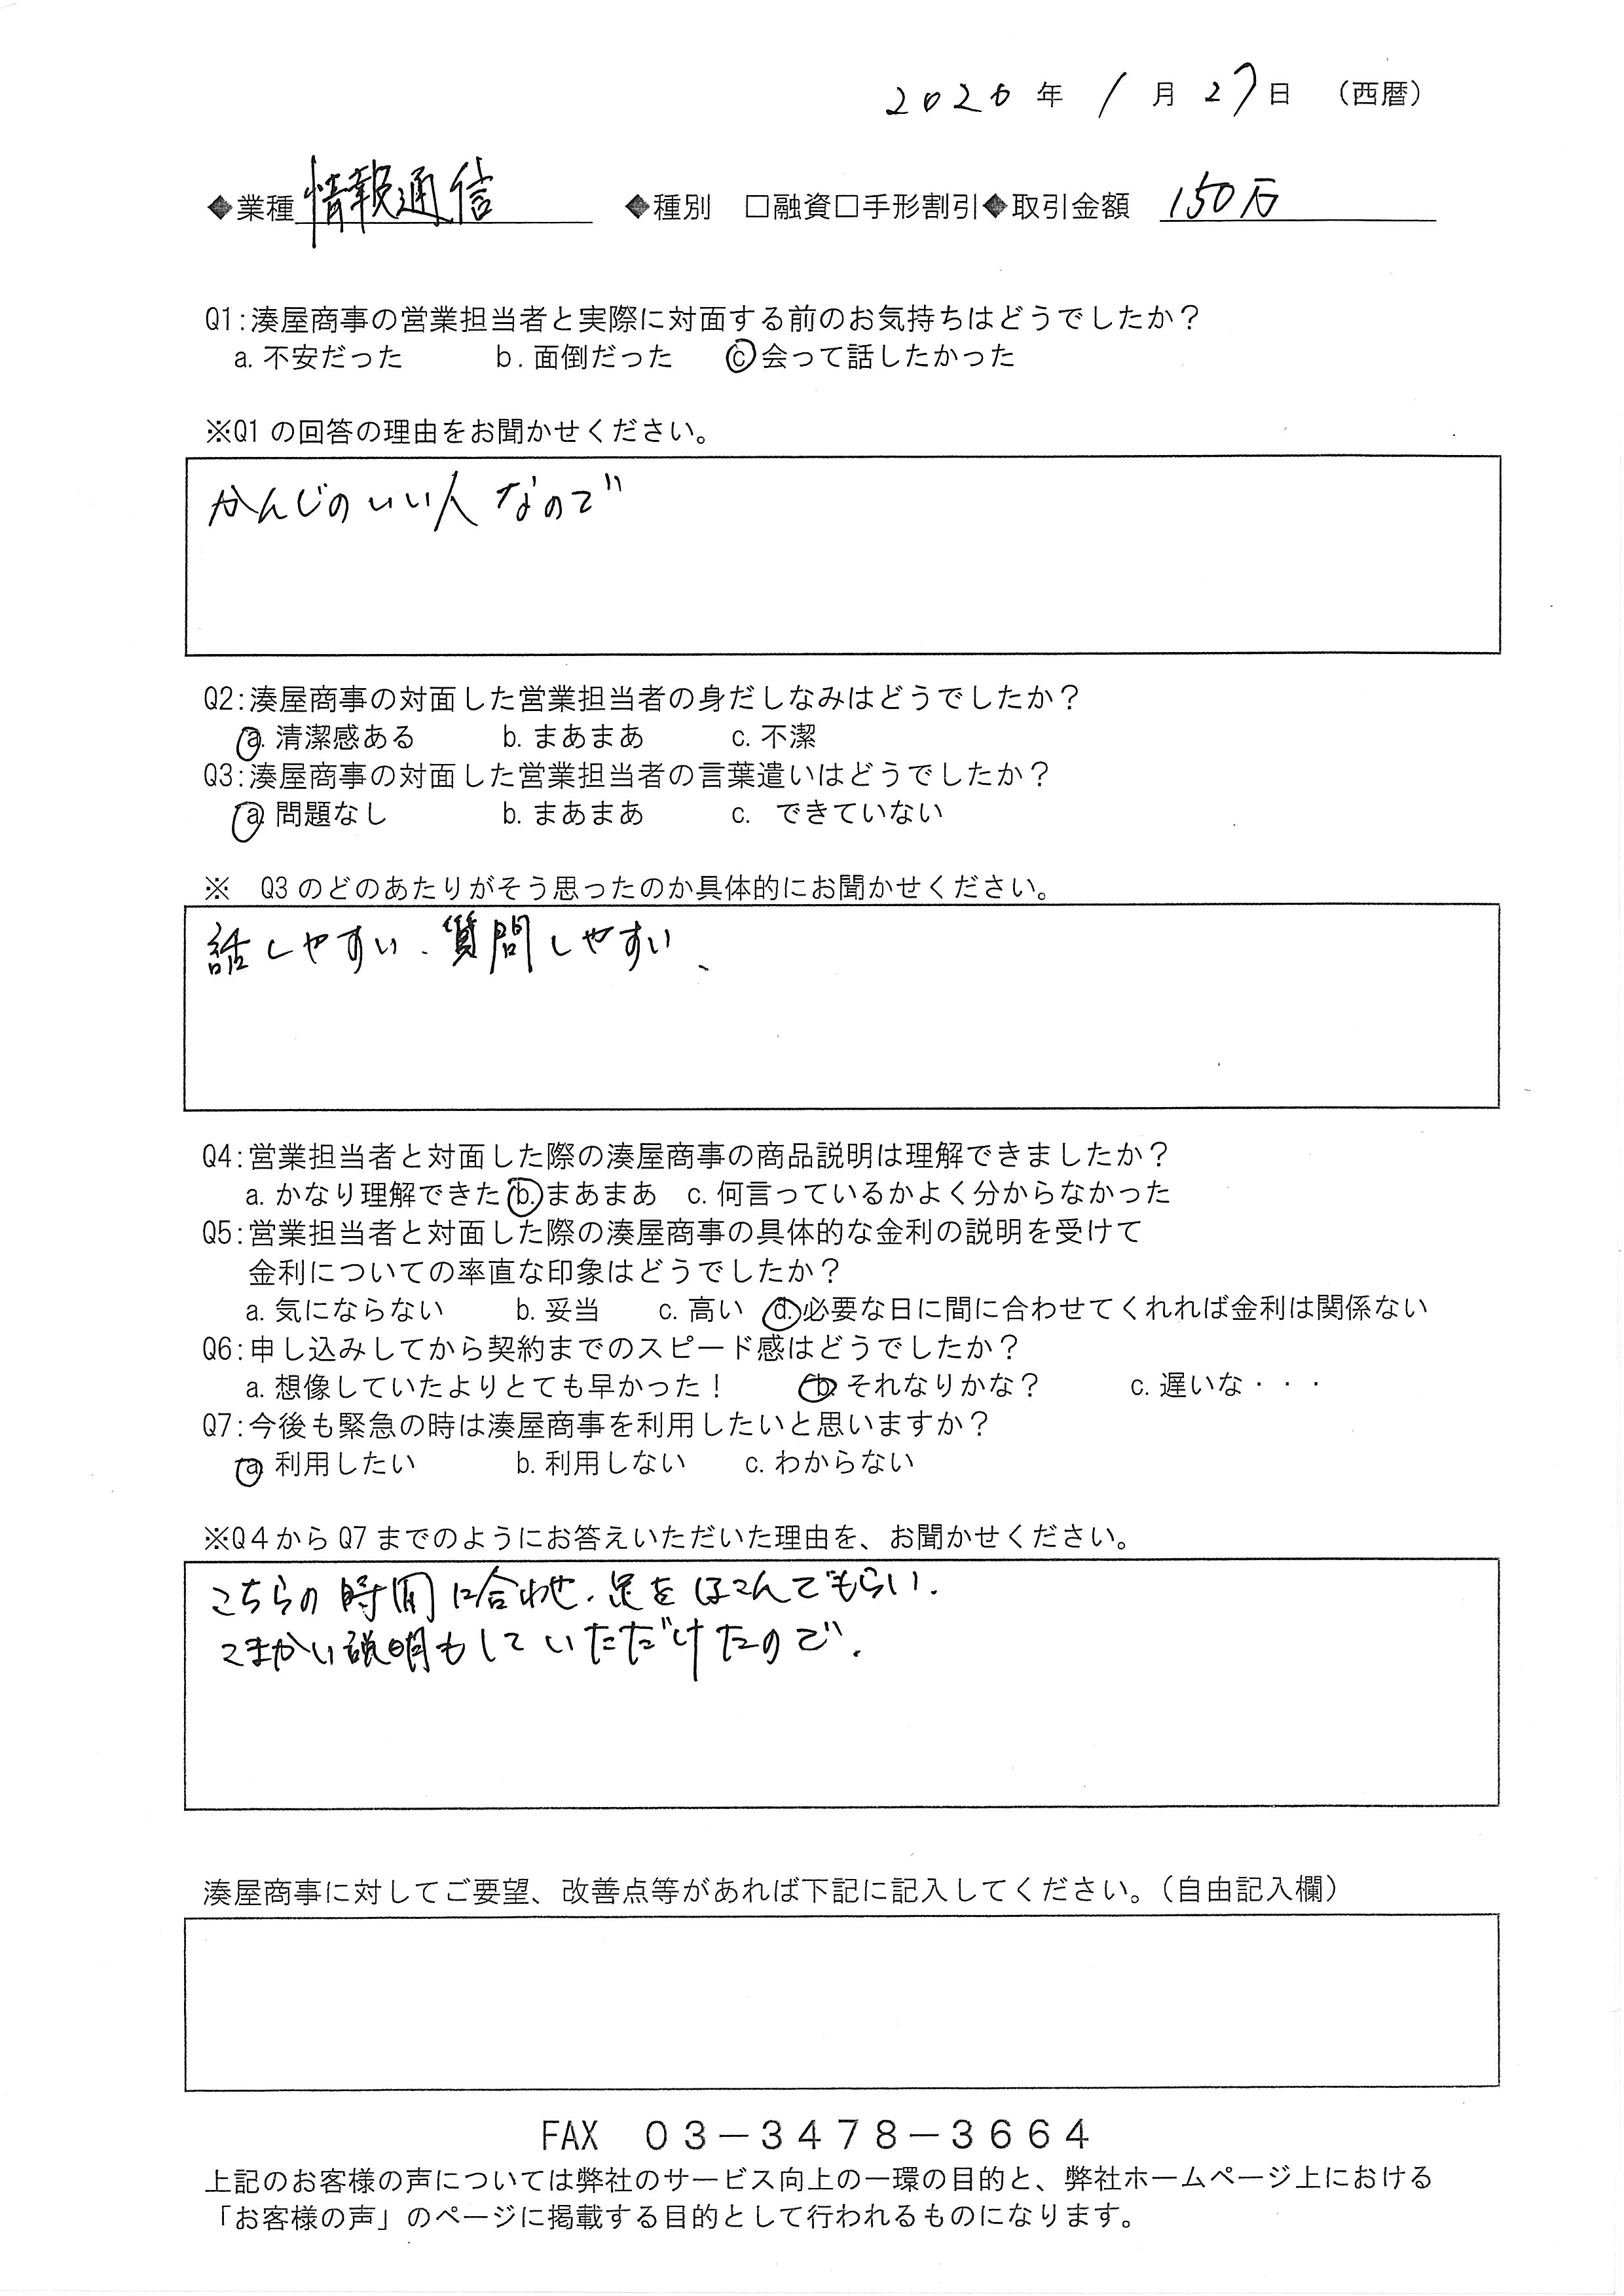 2020年 1月27日 （西暦）
◆業種 情報通信 ◆種別 □融資□手形割引◆取引金額 150万
Q1:湊屋商事の営業担当者と実際に対面する前のお気持ちはどうでしたか？
a. 不安だった b. 面倒だった c 会って話したかった
※Q1の回答の理由をお聞かせください。
かんじのいい人なので
Q2:湊屋商事の対面した営業担当者の身だしなみはどうでしたか？
a. 清潔感ある b. まあまあ c. 不潔
Q3:湊屋商事の対面した営業担当者の言葉遣いはどうでしたか？
a. 問題なし b. まあまあ c. できていない
※ Q3のどのあたりがそう思ったのか具体的にお聞かせください。
話しやすい、質問しやすい、
Q4:営業担当者と対面した際の湊屋商事の商品説明は理解できましたか？
a. かなり理解できた b. まあまあ c. 何言っているかよく分からなかった
Q5:営業担当者と対面した際の湊屋商事の具体的な金利の説明を受けて
金利についての率直な印象はどうでしたか？
a. 気にならない b. 妥当 c. 高い d. 必要な日に間に合わせてくれれば金利は関係ない
Q6:申し込みしてから契約までのスピード感はどうでしたか？
a. 想像していたよりとても早かった！ b. それなりかな？ c. 遅いな・・・
Q7:今後も緊急の時は湊屋商事を利用したいと思いますか？
a 利用したい b. 利用しない c. わからない
※Q４からQ7までのようにお答えいただいた理由を、お聞かせください。
こちらの時間に合わせ、足をはこんでもらい、
こまかい説明もしていただけたので、
湊屋商事に対してご要望、改善点等があれば下記に記入してください。（自由記入欄）
FAX ０３－３４７８－３６６４
上記のお客様の声については弊社のサービス向上の一環の目的と、弊社ホームページ上における
「お客様の声」のページに掲載する目的として行われるものになります。